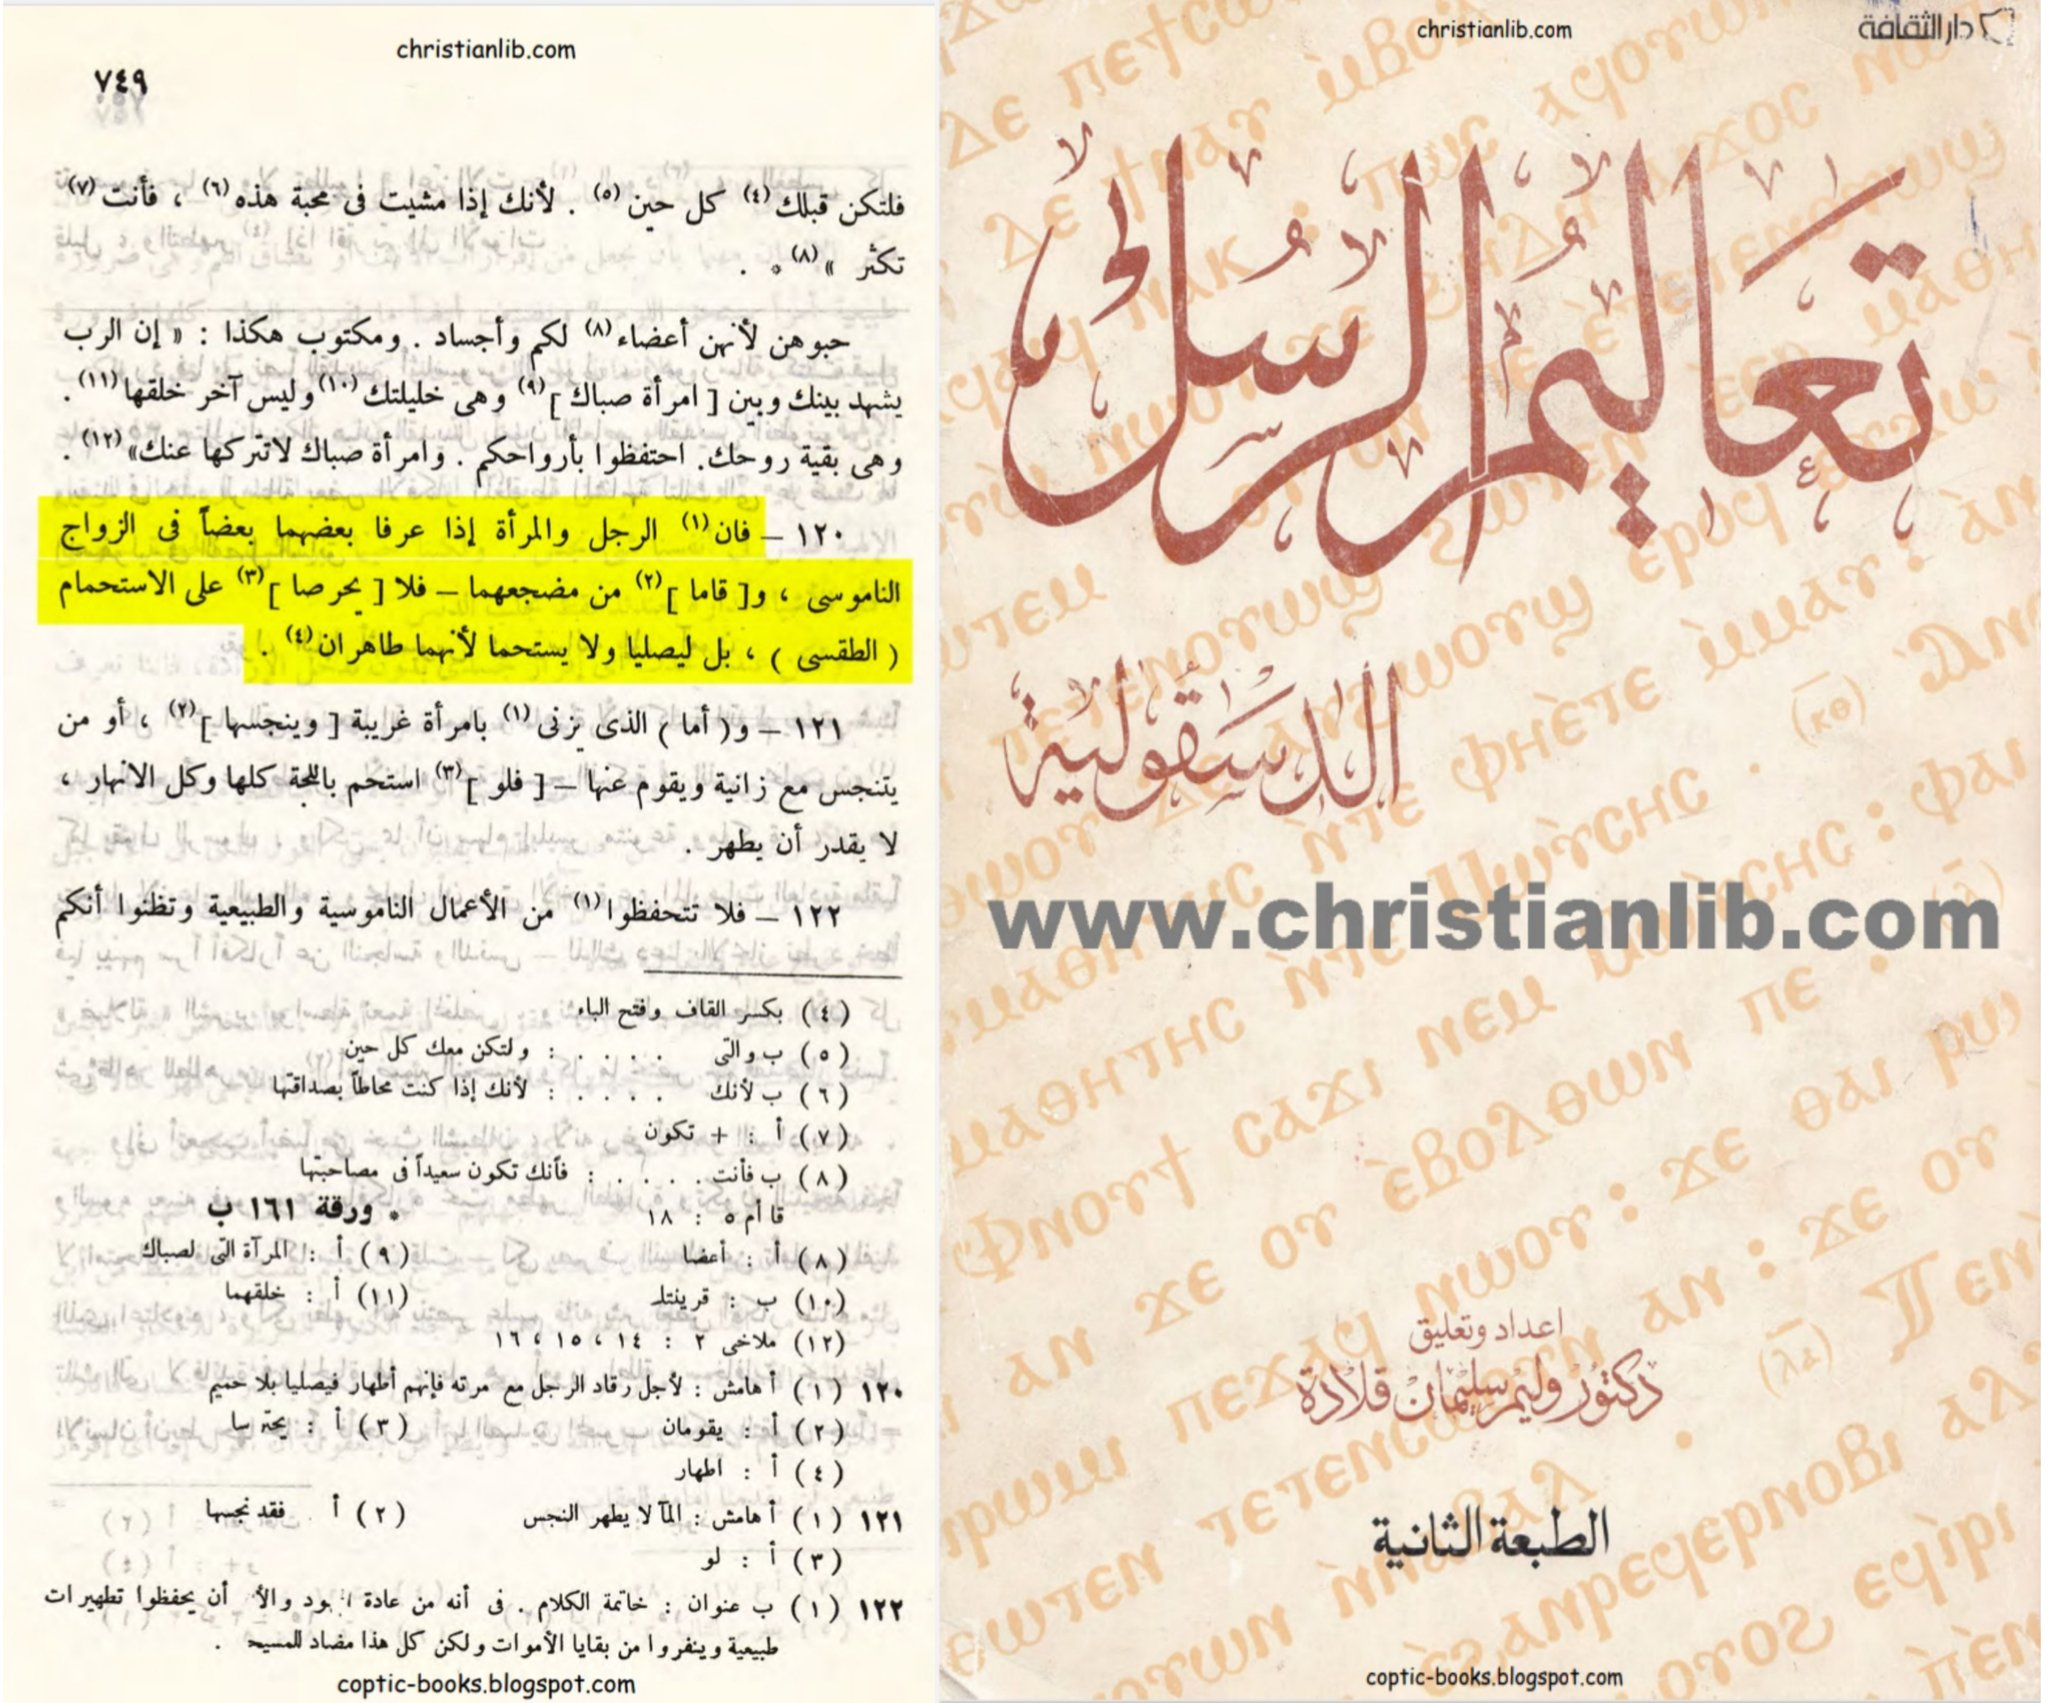 christianlib.com
٧٤٩
فلتكن قبلك (٤) كل حين (٥) . لأنك إذا مشيت فى محبة هذه (٦) ، فأنت (٧)
تكثر » (٨) * .
حبوهن لأنهن أعضاء (٨) لكم وأجساد . ومكتوب هكذا : « إن الرب
يشهد بينك وبين [ امرأة صباك ] (٩) وهى خليلتك (١٠) وليس آخر خلقها (١١) .
وهى بقية روحك. احتفظوا بأرواحكم . وامرأة صباك لاتتركها عنك» (١٢) .
١٢٠ – فان (١) الرجل والمرأة إذا عرفا بعضهما بعضاً فى الزواج
الناموسى ، و[ قاما ] (٢) من مضجعهما – فلا [ يحرصا ] (٣) على الاستحمام
( الطقسى ) ، بل ليصليا ولا يستحما لأنهما طاهران (٤) .
١٢١ – و( أما ) الذى يزنى (١) بامرأة غريبة [ وينجسها ] (٢) ، أو من
يتنجس مع زانية ويقوم عنها – [ فلو ] (٣) استحم باللجة كلها وكل الانهار ،
لا يقدر أن يطهر .
١٢٢ – فلا تتحفظوا (١) من الأعمال الناموسية والطبيعية وتظنوا أنكم
(٤) بكسر القاف وفتح الباء
(٥) ب والتى . . . . : ولتكن معك كل حين
(٦) ب لأنك . . . . : لأنك إذا كنت محاطاً بصداقتها
(٧) أ : + تكون
(٨) ب فأنت . . . . . : فأنك تكون سعيداً فى مصاحبتها
قا أم ٥ : ١٨ * ورقة ١٦١ ب
(٨) أ : أعضا (٩) أ : المرآة التى لصباك
(١٠) ب : قرينتك (١١) أ : خلقهما
(١٢) ملاخى ٢ : ١٤ ، ١٥ ، ١٦
١٢٠ (١) أ هامش : لأجل رقاد الرجل مع مرته فإنهم أطهار فيصليا بلا حميم
(٢) أ : يقومان (٣) أ : يحترسا
(٤) أ : اطهار
١٢١ (١) أ هامش : المآ لا يطهر النجس (٢) أ . فقد نجسها
(٣) أ : لو
١٢٢ (١) ب عنوان : خاتمة الكلام . فى أنه من عادة أن يحفظوا تطهيرات
طبيعية وينفروا من بقايا الأموات ولكن كل هذا مضاد للمسيحية .
coptic-books.blogspot.com
christianlib.com
دار الثقافة
تعاليم الرسل
الدسقولية
www.christianlib.com
اعداد وتعليق
دكتور وليم سليمان قلادة
الطبعة الثانية
coptic-books.blogspot.com